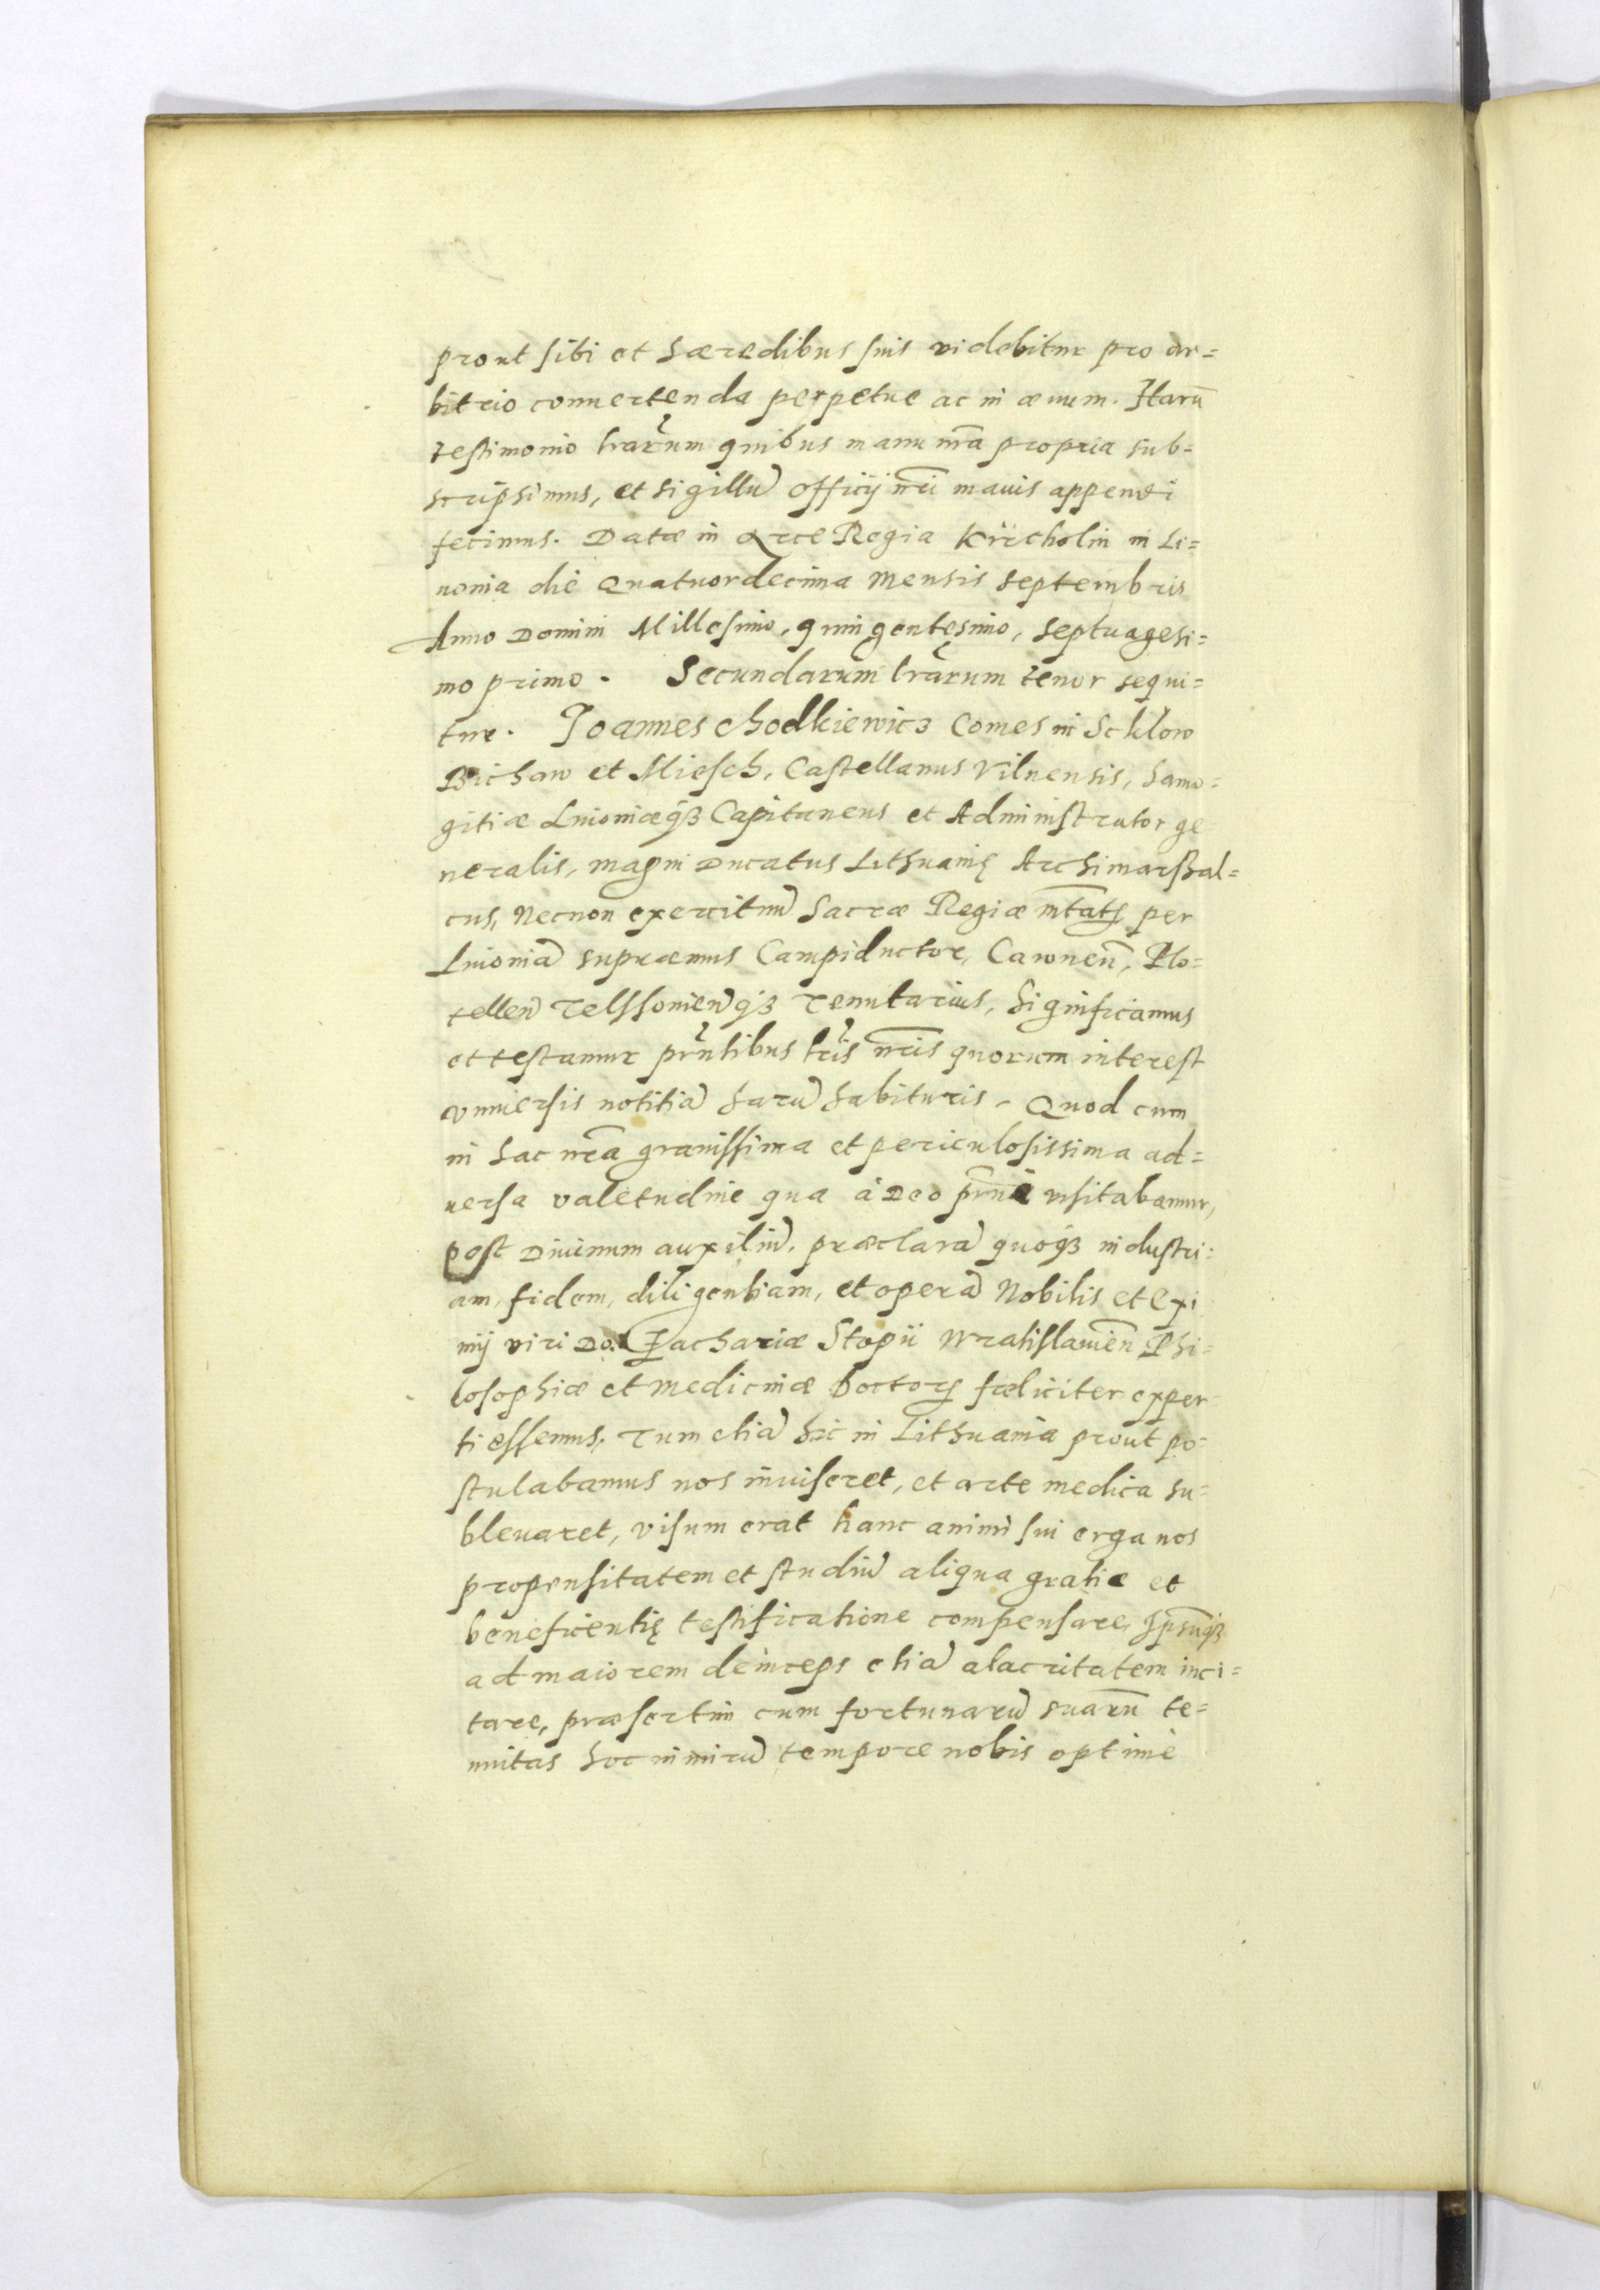 prout sibi et hæredibus suis videbitur pro ar=
bitrio conuertenda perpetue ac in æuum. Harũ
testimonio lrarum quibus manu nrã propria sub=
scripsimus, et sigillũ officij nri maius appendi
fecimus. Datæ in Arce Regia Kircholm in Li=
uonia die Quatuordecima Mensis Septembris
Anno Domini Millesimo, quingentesimo, septuagesi=
mo primo. Secundarum lrarum tenor sequi=
tur. Joannes Chodkiewicz Comes in Schlow
Bichaw et Miesch, Castellanus Vilnensis, Samo=
gitiæ Liuoniæqȝ Capitaneus et Administrator ge
neralis, magni Ducatus Lithuanię Archimarschal=
cus, Necnon exercituũ Sacræ Regiæ mtatis per
Liuoniã supræmus Campiductor, Cawneñ, Plo=
telleñ Telssonieñqȝ Tenutarius, Significamus
et testamur prñtibus lris nris quorum interest
vniuersis notitiã harũ habituris. Quod cum
in hac nrã grauissima et periculosissima ad=
uersa valetudine qua à Deo prñe visitabamur,
post Diuinum auxiliũ, præclarã quoqȝ industri=
am, fidem, diligentiam, et operã Nobilis et Exi
mij viri Do. Zachariæ Stopii Wratislauieñ Phi=
losophiæ et Medicinæ Doctoris fœliciter exper=
ti essemus, Tum etiã hic in Lithuania prout po=
stulabamus nos inuiseret, et arte medica su=
bleuaret, visum erat hanc animi sui erga nos
propensitatem et studiũ aliqua gratiæ et
beneficentię testificatione compensare, Ipsumqȝ
ad maiorem deinceps etiã alacritatem inci=
tare, præsertim cum fortunarũ suarũ te=
nuitas hoc nimirũ tempore nobis optimè